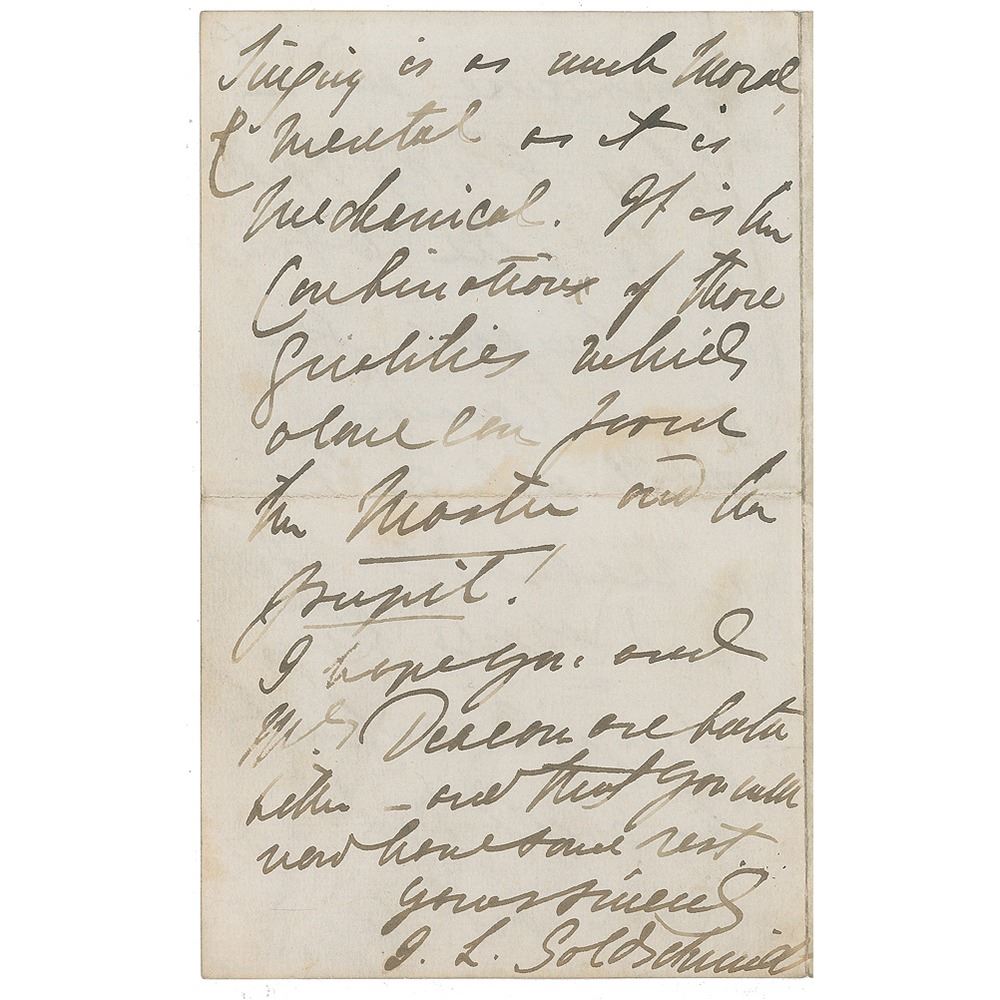 Singing is as much Moral,
& Mental as it is
Mechanical. It is the
Combination of those
qualities which
alone can form
the Master and the
pupil!
I hope you and
Mrs Deacon are both
better – and that you will
now have some rest.
yours sincerely
J. L. Goldschmidt